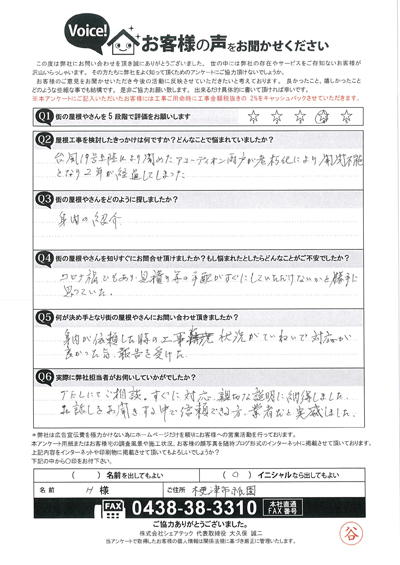 Voice!
お客様の声をお聞かせください
この度は弊社にお問い合わせを頂き誠にありがとうございました。世の中には弊社の存在やサービスをご存知ないお客様が
沢山いらっしゃいます。その方たちに弊社をよく知って頂くためのアンケートにご協力頂けないでしょうか。
お客様のご意見をお聞かせいただき今後の活動に反映させていただきたいと考えております。良かったこと、嬉しかったこと
どのような些細な事でも結構です。是非ご協力お願い致します。出来るだけ具体的に書いて頂ければ幸いです。
※本アンケートにご記入いただいたお客様には工事ご用命時に工事金額税抜きの 2%をキャッシュバックさせていただきます。
Q1 街の屋根やさんを5段階で評価をお願いします
Q2 屋根工事を検討したきっかけは何ですか?どんなことで悩まれていましたか?
台風19号上陸により閉めたアコーディオン雨戸が老朽化により開閉不能
となり2年が経過してしまった
Q3 街の屋根やさんをどのように探しましたか?
身内の紹介
Q4 街の屋根やさんを知りすぐにお問合せ頂けましたか?もし悩まれたとしたらどんなことがご不安でしたか?
コロナ禍でもあり見積り等の手配がすぐにしていただけないかと勝手に
思っていた。
Q5 何が決め手となり街の屋根やさんにお問い合わせ頂きましたか?
身内が依頼した時の工事状況がていねいで対応が
良かった旨、報告を受けた
Q6 実際に弊社担当者がお伺いしていかがでしたか?
TELにてご相談、すぐに対応、親切な説明に納得しました。
お話しをお聞きする中で信頼できる方、業者だと実感しました。
※弊社は広告宣伝費を極力かけない為にホームページだけを頼りにお客様への営業活動を行っております。
本アンケート用紙またはお客様宅の調査風景や施工状況、お客様の顔写真を随時ブログ形式のインターネットに掲載させて頂いております。
上記内容をインターネットや印刷物に掲載させて頂いてもよろしいでしょうか?
下記の中から〇印をお付下さい。
( )名前を出してもよい ( ○ )イニシャルなら出してもよい
名前 H様 ご住所 木更津市祇園
FAX 0438-38-3310 本社直通FAX番号
ご協力ありがとうございました。
株式会社シェアテック 代表取締役 大久保 誠二
当アンケートで取得したお客様の個人情報は関係法規に基づき厳正に管理いたします。
谷